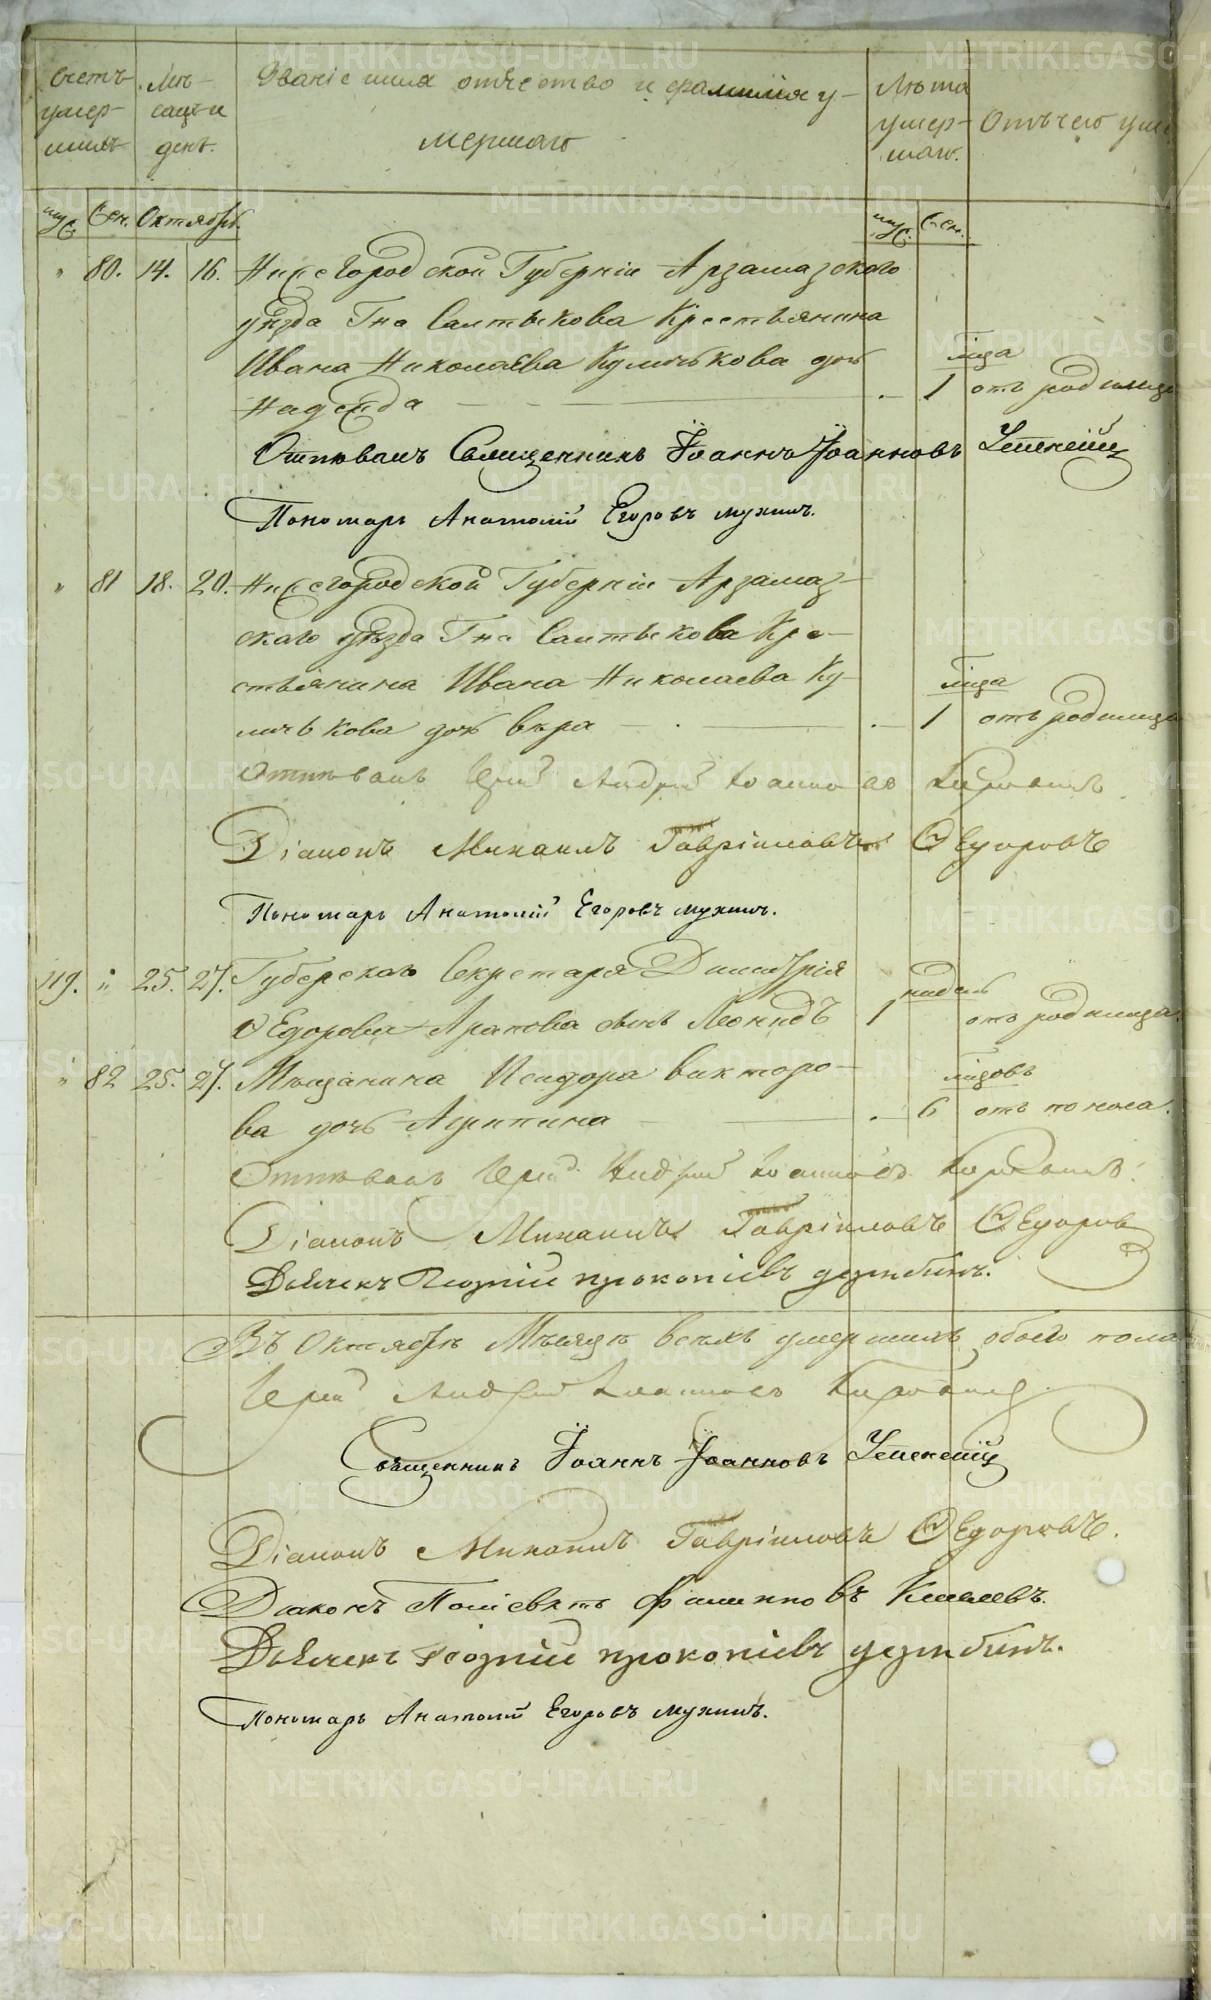 Счетъ умер- шихъ
Мѣ- сяцъ и день.
Званіе имя отчество и фамилія у- мершаго
Лѣта умер- шаго.
Отъ чего уме
муж. Жен. Октябрь.
муж. Жен.
" 80. 14. 16. Нижегородской Губерніи Арзамазского
уѣзда Гна Салтыкова Крестьянина
Ивана Николаева Куличькова дочь года
Надежда 1 отъ родимца
Отпѣвалъ Священникъ Іоаннъ Іоанновъ Успенскій
Пономарь Анатолій Егоровъ Мухинъ.
" 81 18. 20. Нижегородской Губерніи Арзамаз-
скаго уѣзда Гна Салтыкова Кре-
стьянина Ивана Николаева Ку- года
личькова дочь Вѣра 1 отъ родимца
Отпѣвалъ Іерей Андрей Іоанновъ
Діаконъ Михаилъ Гавріиловъ Ѳедоровъ
Пономарь Анатолій Егоровъ Мухинъ.
119. " 25. 27. Губерскаго Секретаря Димитрія недель
Ѳедорова Арапова сынъ Леонидъ 1 отъ родимца.
" 82 25. 27. Мѣщанина Исидора Викторо- годовъ
ва дочь Агрипина 6 отъ поноса.
Отпѣвалъ Іерей Андрей Іоанновъ
Діаконъ Михаилъ Гавріиловъ Ѳедоровъ
Дьячекъ Георгій Прокопіевъ
Въ Октябрѣ Мѣсяцѣ всѣхъ умершихъ обоего пола
Іерей Андрей Іоанновъ
Священникъ Іоаннъ Іоанновъ Успенскій
Діаконъ Михаилъ Гавріиловъ Ѳедоровъ.
Діаконъ Поліевктъ
Дьячекъ Георгій Прокопіевъ
Пономарь Анатолій Егоровъ Мухинъ.
METRIKI.GASO-URAL.RU